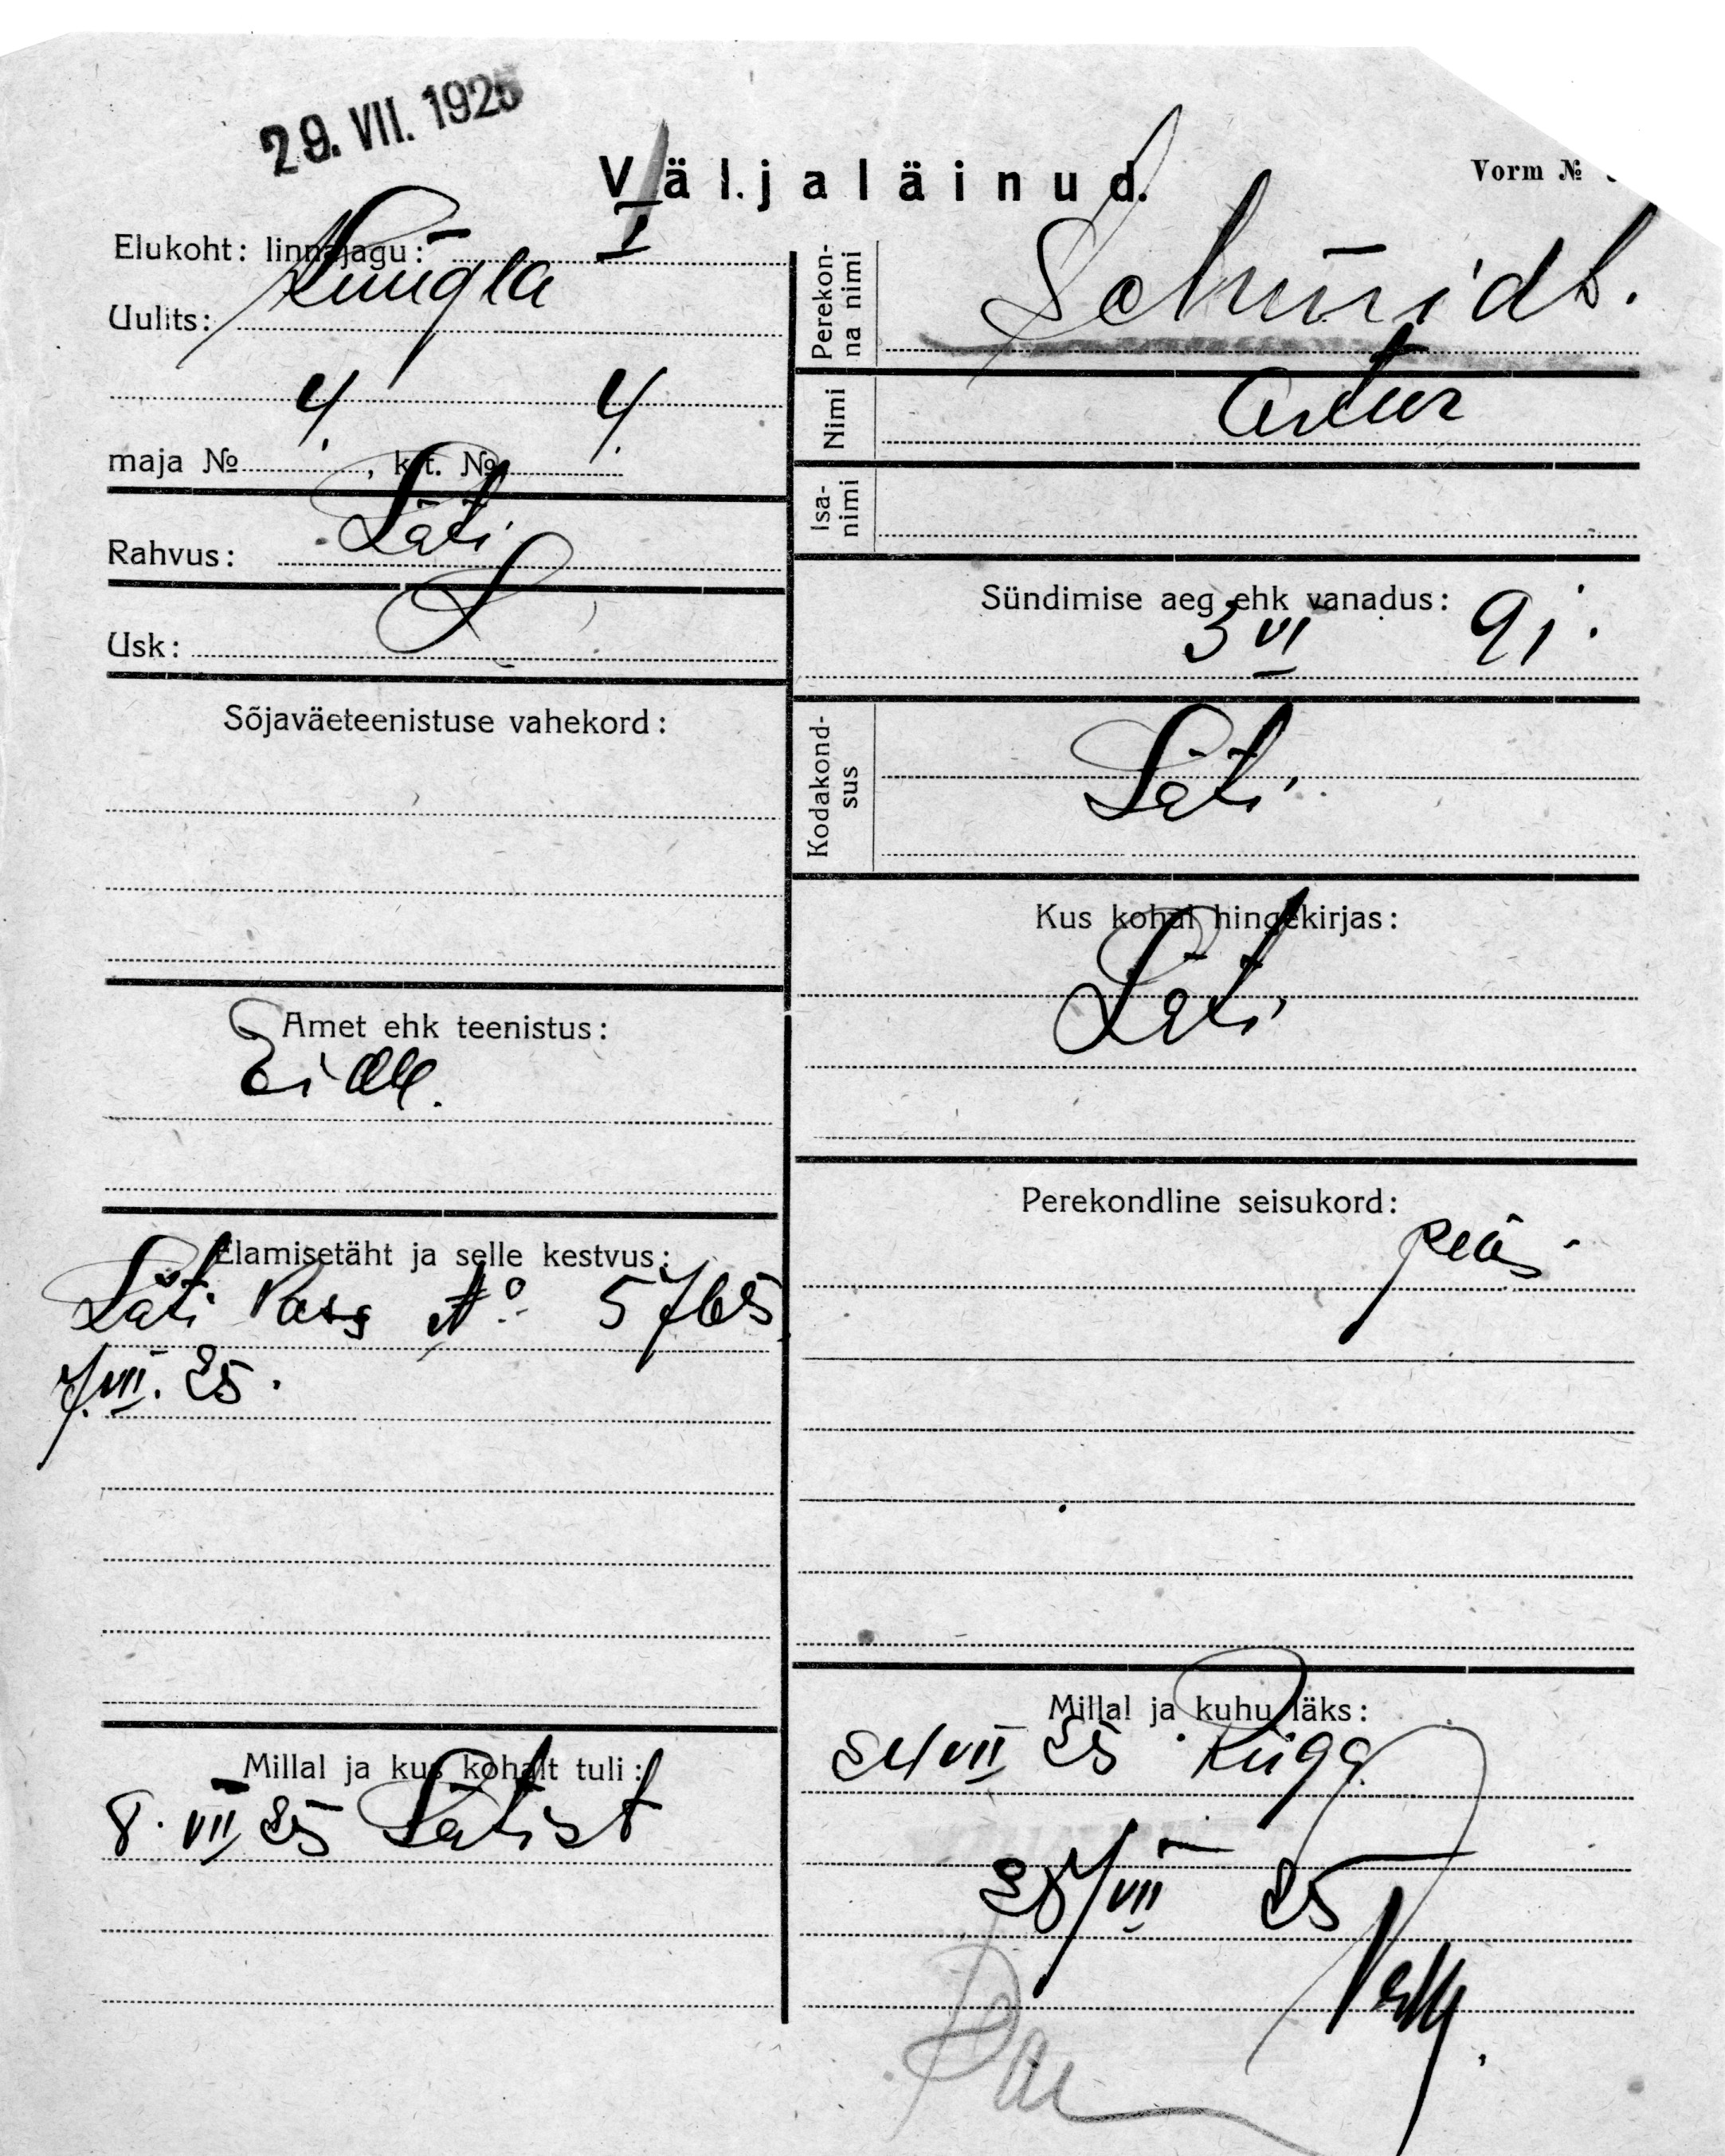 29. VII. 1925
Väljaläinud.
Vorm №
Elukoht: linnajagu: I
Uulits: Kungla
maja № 4., krt. № 4.
Rahvus: Läti
Usk: L
Sõjaväeteenistuse vahekord:
Amet ehk teenistus:
Elamisetäht ja selle kestvus:
Läti Pass № 5765
7.VII.25.
Millal ja kus kohalt tuli:
8. VII 25 Lätist
Perekonna nimi Schmidt.
Nimi Artur
Isanimi
Sündimise aeg ehk vanadus:
3 VI 91.
Kodakondsus Läti
Kus kohal hingekirjas:
Läti
Perekondline seisukord:
Millal ja kuhu läks:
24 VII 25 Riiga
28/VII 25